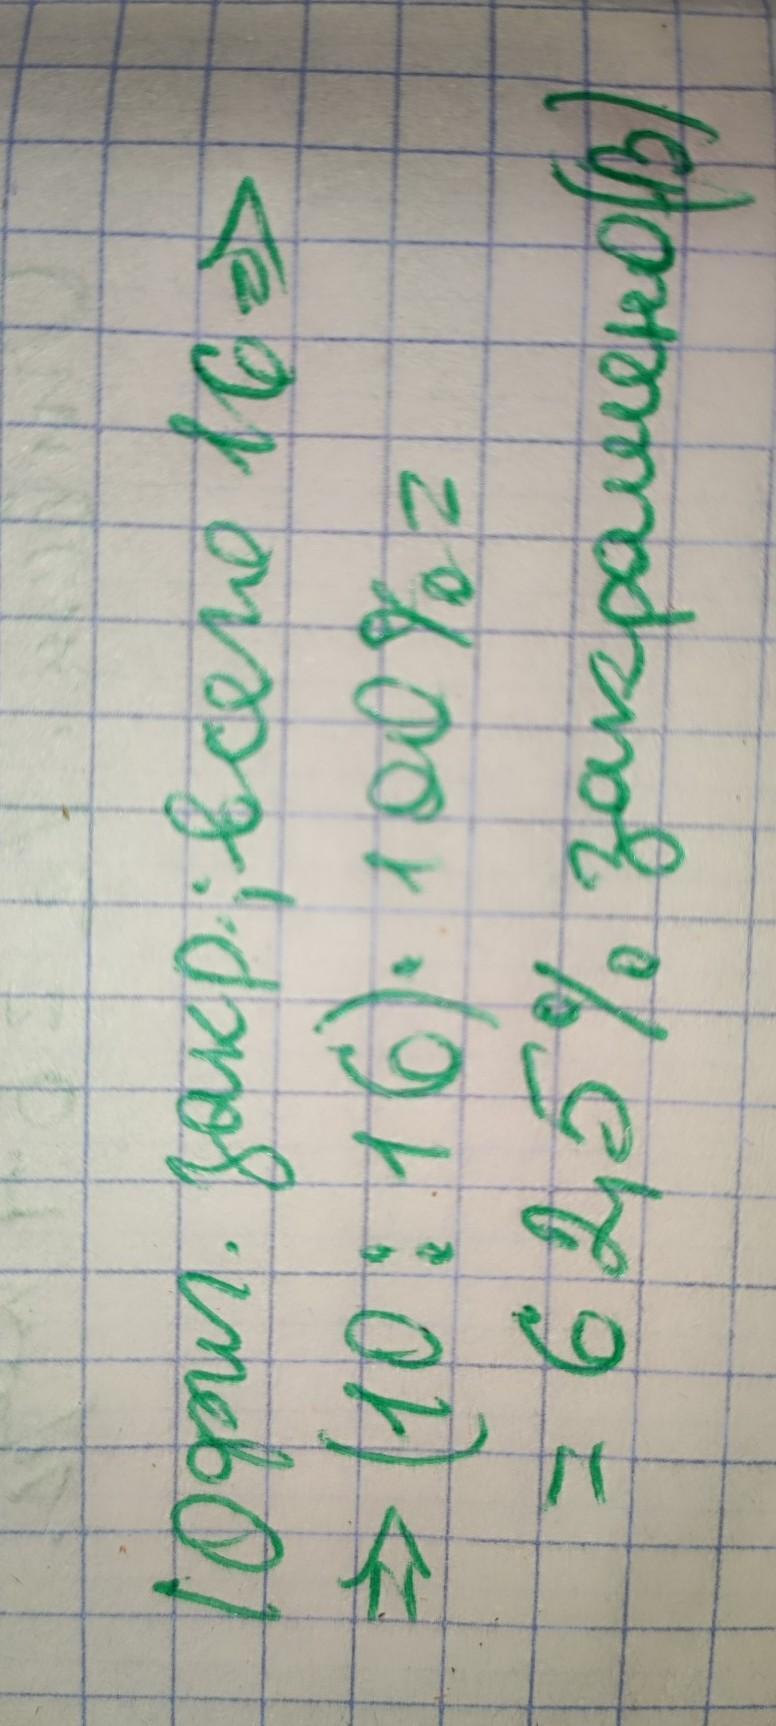 10 фиг. закр.; всего 16 =>
=> (10 : 16) · 100% =
= 62,5% закрашено(В)